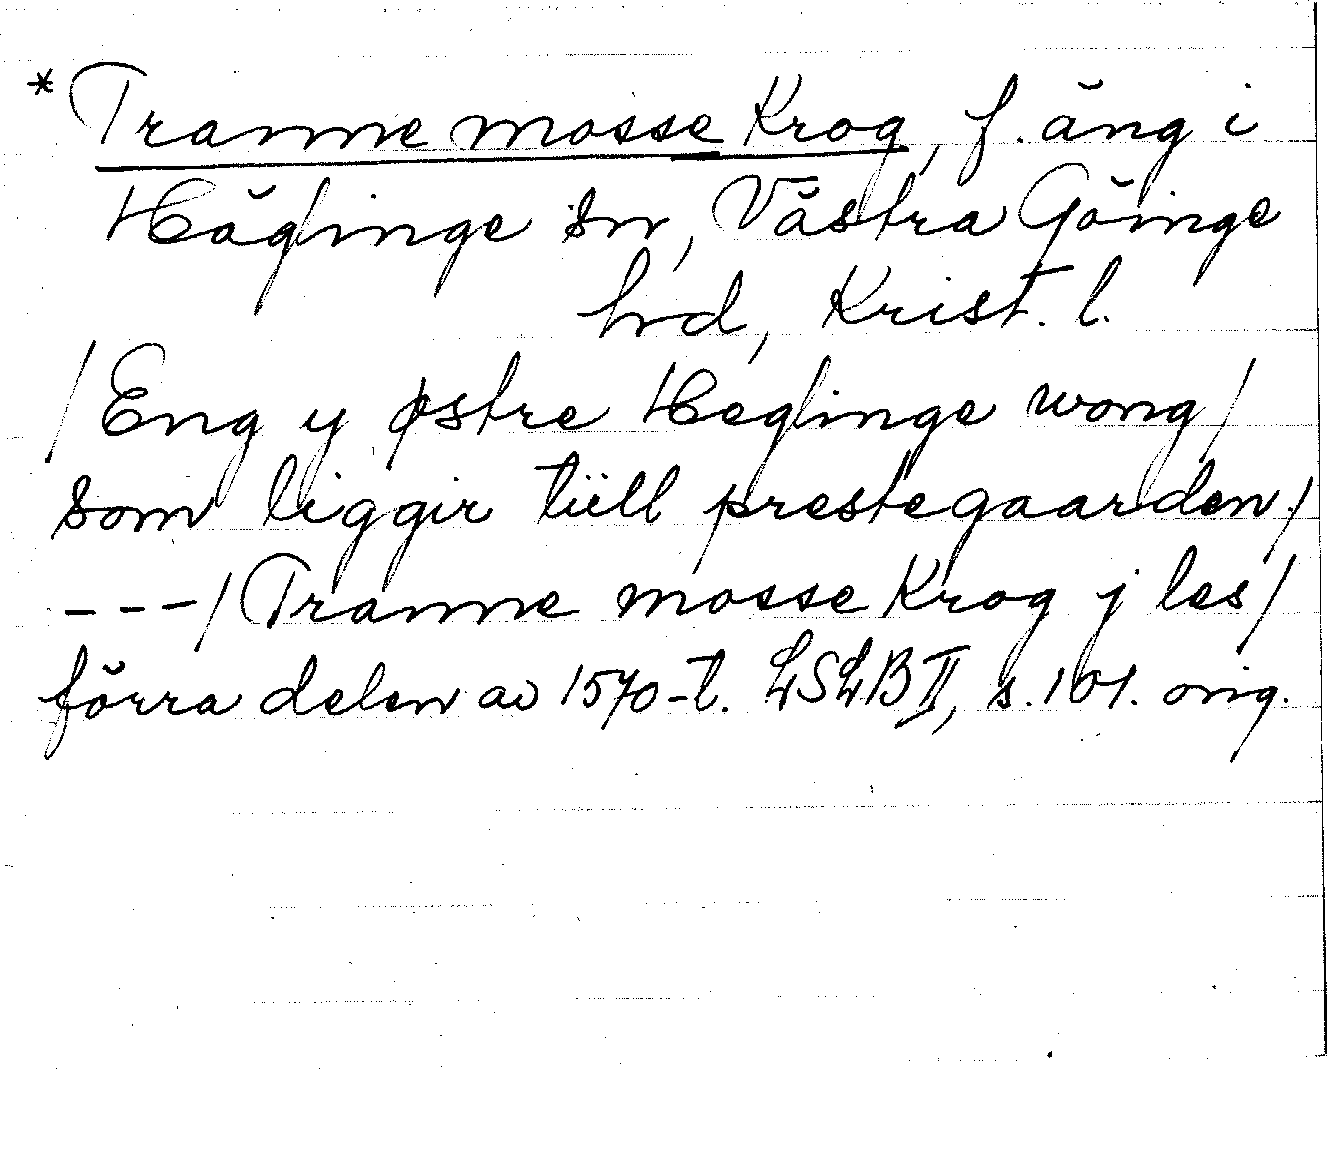 * Tranne mosse Krog, f. äng i
Häglinge sn, Västra Göinge
hrd, Krist. l.
/ Eng y østre Heglinge wong /
som liggir tiill prestegaarden /
--- / Tranne mosse Krog j les /
förra delen av 1570-t. LSLB II, s. 101. orig.